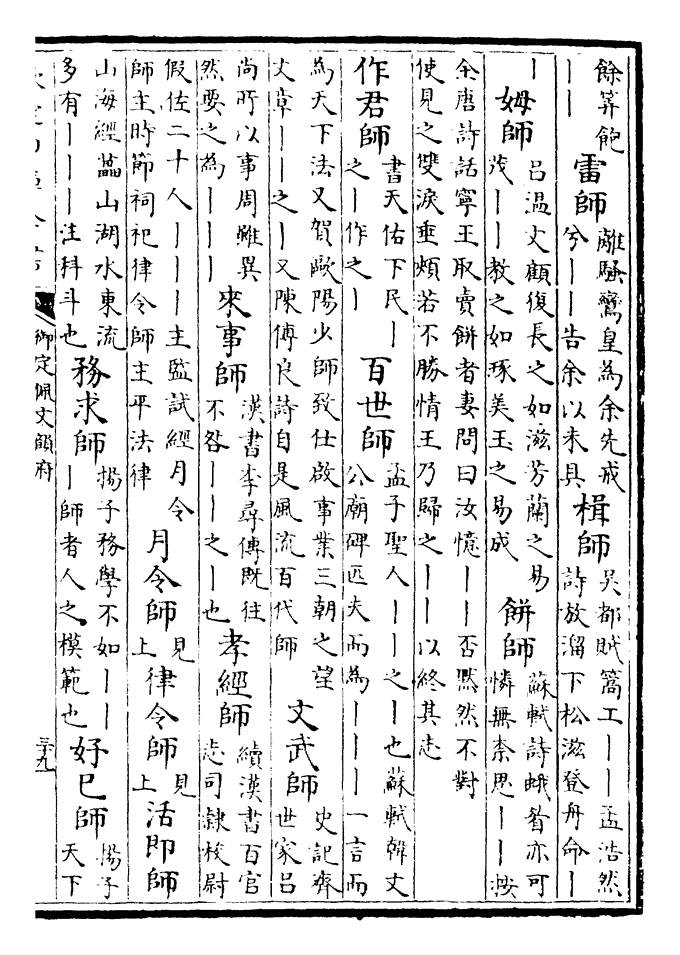 餘筭飽
｜｜
雷師
離騷鸞皇為余先戒
兮｜｜告余以未具
楫師
吳都賊篙工｜｜孟浩然
詩放溜下松滋登舟命｜
｜
姆師
呂温文顧復長之如滋芳蘭之易
茂｜｜教之如琢美玉之易成
餅師
蘇軾詩蛾眉亦可
憐無柰思｜｜按
全唐詩話寧王取賣餅者妻問曰汝憶｜｜否黙然不對
使見之雙淚垂頰若不勝情王乃歸之｜｜以終其志
作君師
書天佑下民｜
之｜作之｜
百世師
孟子聖人｜｜之｜也蘇軾韓文
公廟碑匹夫而為｜｜｜一言而
為天下法又賀歐陽少師致仕啟事業三朝之望
文章｜｜之｜又陳傅良詩自是風流百代師
文武師
史記齊
世家吕
尚所以事周雖異
然要之為｜｜｜
來事師
漢書李尋傳既往
不咎｜｜之｜也
孝經師
續漢書百官
志司隸校尉
假佐二十人｜｜｜主監試經月令
師主時節祠祀律令師主平法律
月令師
見
上
律令師
見
上
活即師
山海經藟山湖水東流
多有｜｜｜注科斗也
務求師
揚子務學不如｜｜
｜師者人之模範也
好巳師
揚子
天下
御定佩文韻府